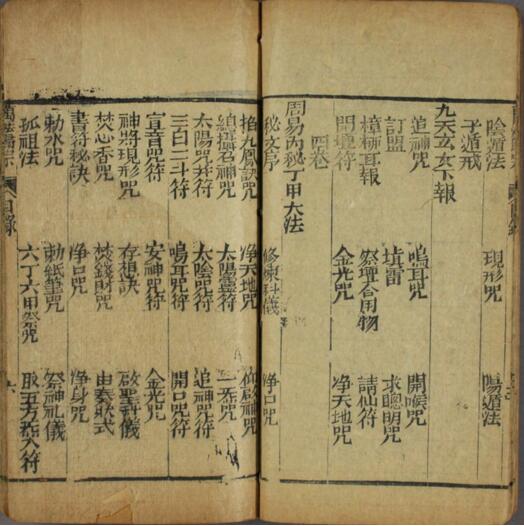 陰遁法　現形咒　陽遁法
子遁戒
九天玄女下報
追神咒　鳴耳咒　開喉咒
訂盟　填雷　求聰明咒
樟柳耳報　祭壇合用物　請仙符
開壇符　金光咒　净天地咒
四卷
周易内秘丁甲大法
秘文序　修煉科儀　净口咒
掐九鳳訣咒　净天地咒　仰啟神咒
總攝召神咒　太陽靈符　一炁咒
太陽咒并符　太陰咒符　追神咒符
三百二斗符　鳴耳咒符　開口咒符
宣音咒符　安神咒符　金光咒
神將現形咒　存想訣　啟聖科儀
焚心香咒　焚錢財咒　由奏欵式
書符秘訣　净口咒　净身咒
勅水咒　勅紙筆咒　祭神礼儀
孤祖法　六丁六甲祭咒　取五方炁入符
萬法歸宗　目錄　六